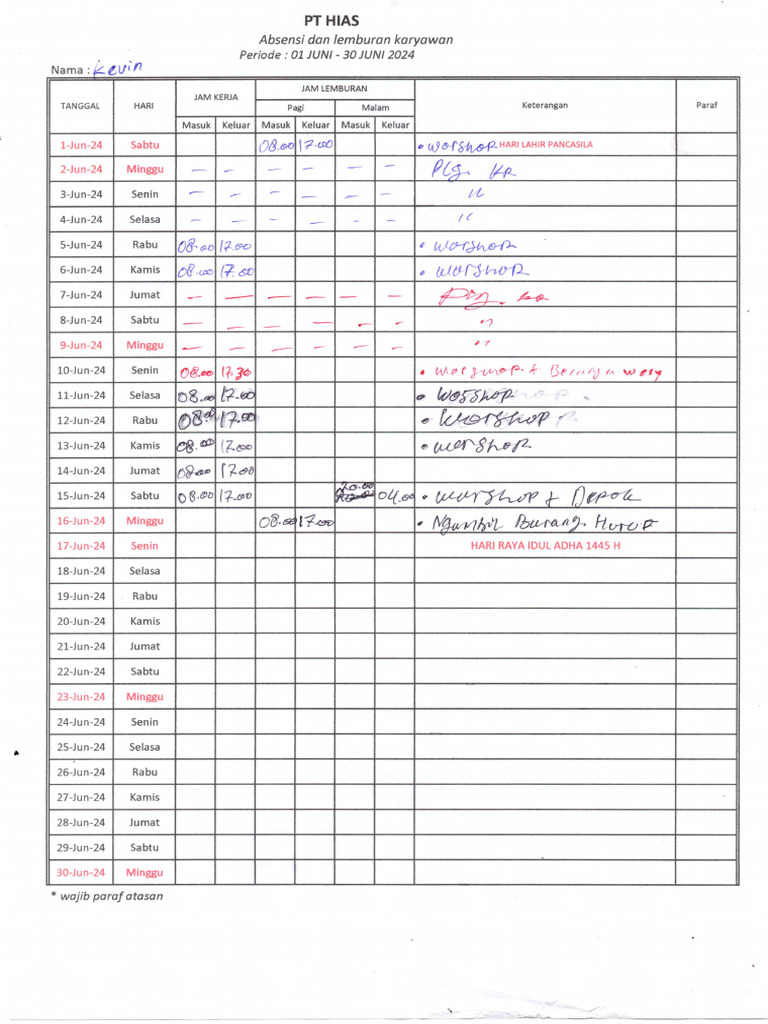 PT HIAS
Absensi dan lemburan karyawan
Periode : 01 JUNI - 30 JUNI 2024
Nama : Kevin
TANGGAL HARI JAM KERJA JAM LEMBURAN Keterangan Paraf
Pagi Malam
Masuk Keluar Masuk Keluar Masuk Keluar
1-Jun-24 Sabtu 08.00 17.00 • Worshop HARI LAHIR PANCASILA
2-Jun-24 Minggu — - - - - - Plg.
3-Jun-24 Senin - - - - - - "
4-Jun-24 Selasa - - - - - - "
5-Jun-24 Rabu 08.00 17.00 • Worshop
6-Jun-24 Kamis 08.00 17.00 • Worshop
7-Jun-24 Jumat — — — - - -
8-Jun-24 Sabtu — — — — - - "
9-Jun-24 Minggu - — — — - - "
10-Jun-24 Senin 08.00 17.30 • Worshop +
11-Jun-24 Selasa 08.00 17.00 • Worshop
12-Jun-24 Rabu 08.00 17.00 • Worshop
13-Jun-24 Kamis 08.00 17.00 • Worshop
14-Jun-24 Jumat 08.00 17.00
15-Jun-24 Sabtu 08.00 17.00 20.00 04.00 • Worshop + Depok
16-Jun-24 Minggu 08.00 17.00 • Ngambil Barang
17-Jun-24 Senin HARI RAYA IDUL ADHA 1445 H
18-Jun-24 Selasa
19-Jun-24 Rabu
20-Jun-24 Kamis
21-Jun-24 Jumat
22-Jun-24 Sabtu
23-Jun-24 Minggu
24-Jun-24 Senin
25-Jun-24 Selasa
26-Jun-24 Rabu
27-Jun-24 Kamis
28-Jun-24 Jumat
29-Jun-24 Sabtu
30-Jun-24 Minggu
* wajib paraf atasan